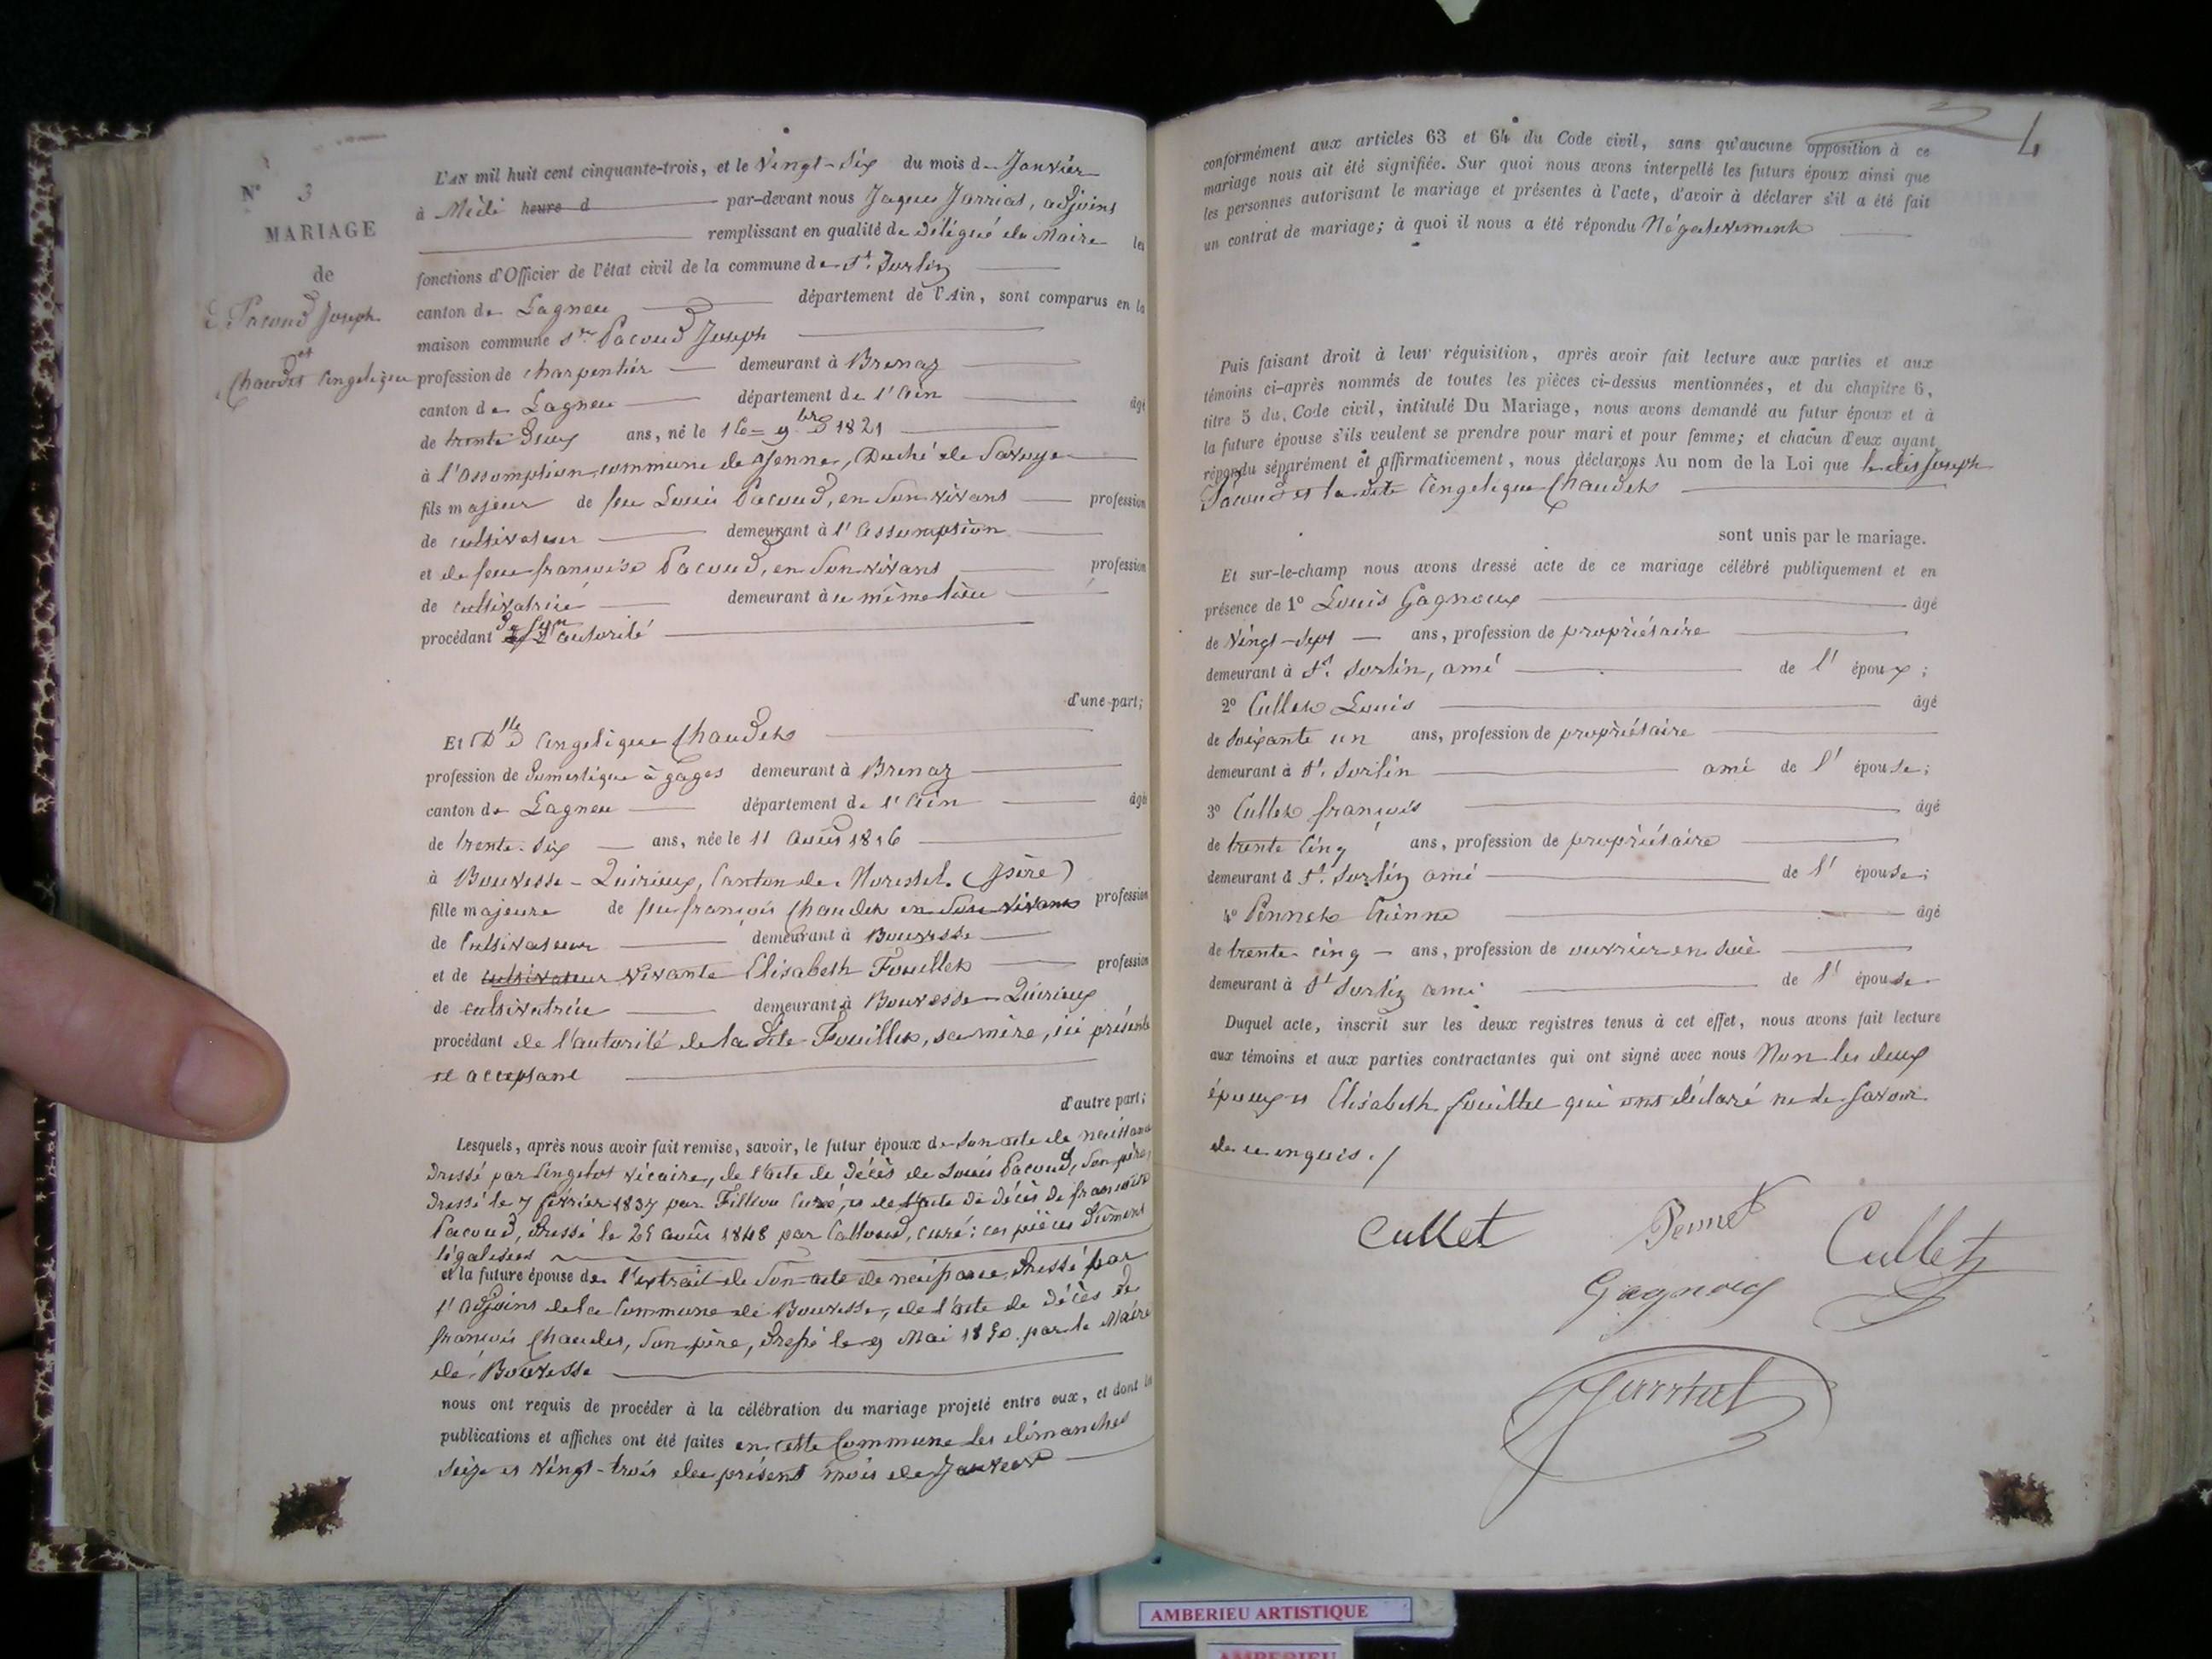 N° 3
MARIAGE
de
Pacoud Joseph
et
Chaudet Angelique
L'AN mil huit cent cinquante-trois, et le Vingt-Six du mois de Janvier
à Midi heure d par-devant nous Jaques Jarriat, adjoint
remplissant en qualité de délégué du Maire les
fonctions d'Officier de l'état civil de la commune de St. Sorlin
canton de Lagneu département de l'Ain, sont comparus en la
maison commune Sr. Pacoud Joseph
profession de charpentier demeurant à Brenaz
canton de Lagneu département de l'Ain âgé
de trente deux ans, né le 16 9bre 1821
à l'Assomption, commune de Yenne, Duché de Savoye
fils majeur de feu Louis Pacoud, en Son vivant profession
de cultivateur demeurant à l'Assomption
et de feue francoise Pacoud, en Son vivant profession
de cultivatrice demeurant à ce même lieu
procédant de Son autorité
d'une part;
Et Dlle Angelique Chaudet
profession de domestique à gages demeurant à Brenaz
canton de Lagneu département de l'Ain âgé
de trente-Six ans, née le 11 Août 1816
à Bouvesse-Quirieux, Canton de Morestel (Isère)
fille majeure de feu françois Chaudet en Son vivant profession
de Cultivateur demeurant à Bouvesse
et de cultivateur vivante Elisabeth Fouillet profession
de cultivatrice demeurant à Bouvesse-Quirieux
procédant de l'autorité de la dite Fouillet, sa mère, ici présente
et acceptant
d'autre part;
Lesquels, après nous avoir fait remise, savoir, le futur époux de Son acte de naissance
dressé par vicaire, de l'acte de décès de Louis Pacoud, Son père,
dressé le 7 février 1837 par Fillion Curé, et de l'acte de décès de francoise
Pacoud, dressé le 25 août 1848 par curé: ces pièces dûment
légalisées
et la future épouse de l'extrait de Son acte de naissance, dressé par
l'adjoint de la Commune de Bouvesse, de l'acte de décès de
françois Chaudet, Son père, dressé le 9 Mai 1850 par le Maire
de Bouvesse
nous ont requis de procéder à la célébration du mariage projeté entre eux, et dont les
publications et affiches ont été faites en cette Commune les dimanches
Seize et Vingt-trois du présent mois de Janvier
4
conformément aux articles 63 et 64 du Code civil, sans qu'aucune opposition à ce
mariage nous ait été signifiée. Sur quoi nous avons interpellé les futurs époux ainsi que
les personnes autorisant le mariage et présentes à l'acte, d'avoir à déclarer s'il a été fait
un contrat de mariage; à quoi il nous a été répondu Négativement
Puis faisant droit à leur réquisition, après avoir fait lecture aux parties et aux
témoins ci-après nommés de toutes les pièces ci-dessus mentionnées, et du chapitre 6,
titre 5 du Code civil, intitulé Du Mariage, nous avons demandé au futur époux et à
la future épouse s'ils veulent se prendre pour mari et pour femme; et chacun d'eux ayant
répondu séparément et affirmativement, nous déclarons Au nom de la Loi que le dit Joseph
Pacoud et la dite Angelique Chaudet
sont unis par le mariage.
Et sur-le-champ nous avons dressé acte de ce mariage célébré publiquement et en
présence de 1° Louis Gagnoux âgé
de Vingt-Sept ans, profession de propriétaire
demeurant à St. Sorlin, ami de l'époux;
2° Cullet Louis âgé
de Soixante un ans, profession de propriétaire
demeurant à St. Sorlin ami de l'épouse;
3° Cullet françois âgé
de trente Cinq ans, profession de propriétaire
demeurant à St. Sorlin ami de l'épouse;
4° Pennet Etienne âgé
de trente-cinq ans, profession de ouvrier en Soie
demeurant à St Sorlin ami de l'épouse
Duquel acte, inscrit sur les deux registres tenus à cet effet, nous avons fait lecture
aux témoins et aux parties contractantes qui ont signé avec nous Non les deux
époux et Elisabeth fouillet qui ont déclaré ne le savoir
de ce enquis./
Cullet Pennet Cullet
Gagnoux
Jarriat
AMBERIEU ARTISTIQUE
AMBERIEU